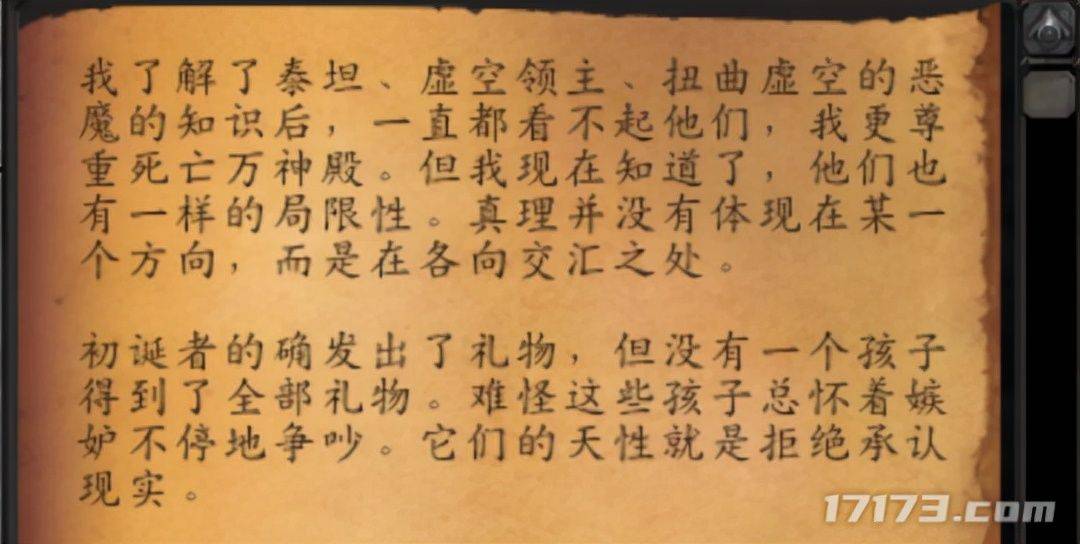 我了解了泰坦、虚空领主、扭曲虚空的恶
魔的知识后，一直都看不起他们，我更尊
重死亡万神殿。但我现在知道了，他们也
有一样的局限性。真理并没有体现在某一
个方向，而是在各向交汇之处。
初诞者的确发出了礼物，但没有一个孩子
得到了全部礼物。难怪这些孩子总怀着嫉
妒不停地争吵。它们的天性就是拒绝承认
现实。
17173.com